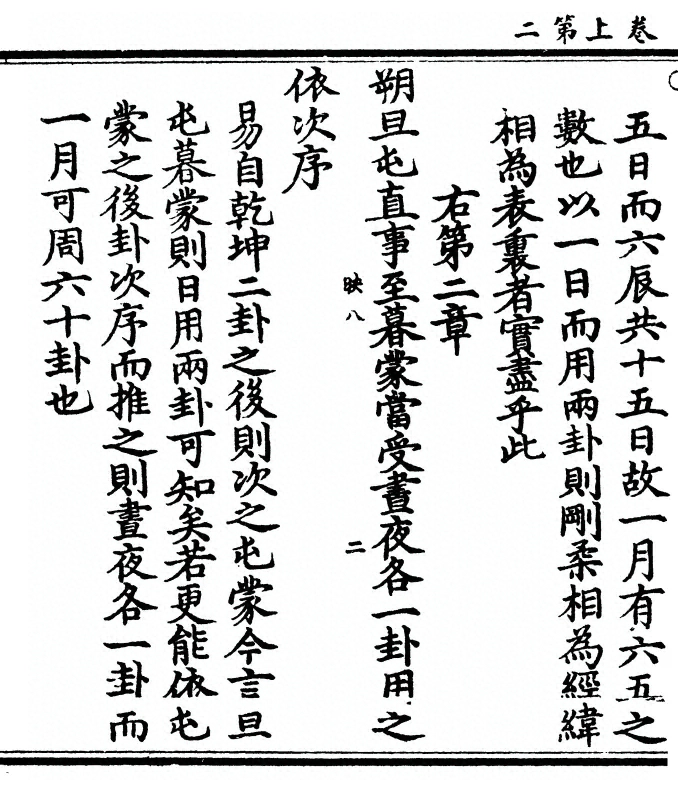 卷上第二
五日而六辰共十五日故一月有六五之
數也以一日而用兩卦則剛柔相為經緯
相為表裏者實盡乎此
右第二章
朔旦屯直事至暮蒙當受晝夜各一卦用之
映八
二
依次序
易自乾坤二卦之後則次之屯蒙今言旦
屯暮蒙則日用兩卦可知矣若更能依屯
蒙之後卦次序而推之則晝夜各一卦而
一月可周六十卦也